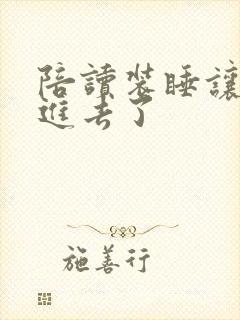 陪讀裝睡讓
進去了
施善行